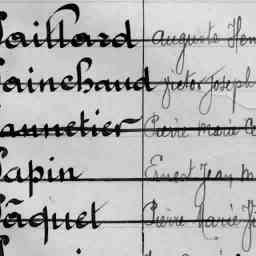 aillard Auguste Hen
ainchaud Victor Joseph
aunetier Pierre Marie
apin Ernest Jean M
âquet Pierre Marie J